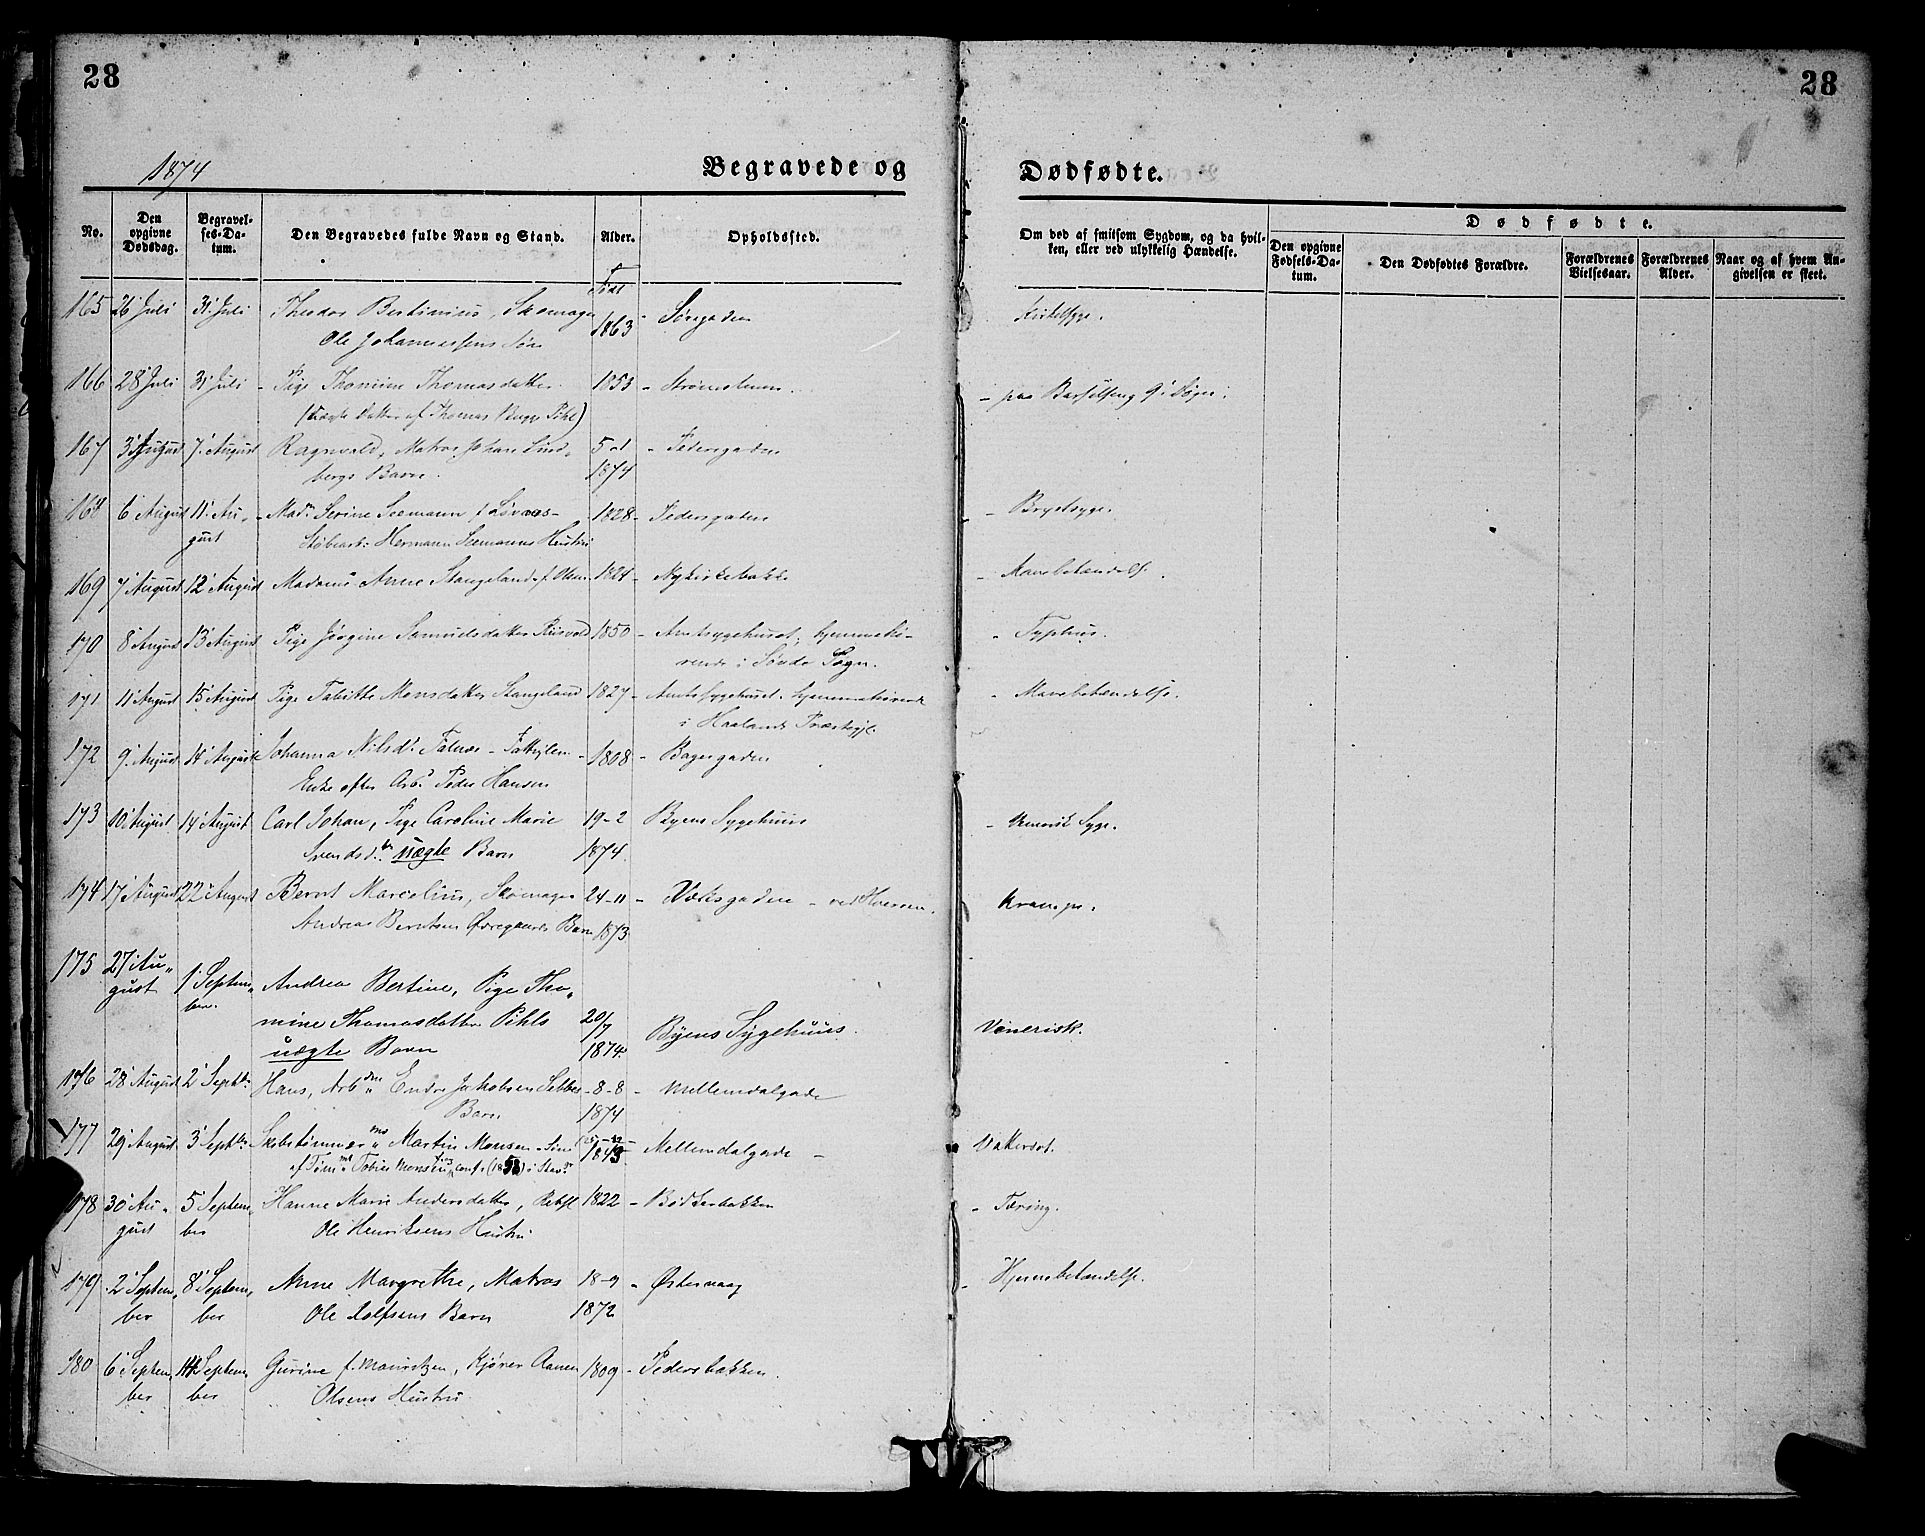 28
28
1874
Begravede og
Dødfødte.
No.
Den opgivne Dødsdag.
Begravelses-Datum.
Den Begravedes fulde Navn og Stand.
Alder.
Opholdssted.
Om død af smitsom Sygdom, og da hvilken, eller ved ulykkelig Hændelse.
Dødfødte.
Den opgivne Fødsels-Datum.
Den Dødfødtes Forældre.
Forældrenes Vielsesaar.
Forældrenes Alder.
Naar og af hvem Angivelsen er skeet.
165 26 Juli 31 Juli Theodor Bertinius, Skomager 1863
Ole Johannessens Søn
166 28 Juli 31 Juli Pige Thomine Thomasdatter 1853 - paa Barselseng
(Datter af Thomas Pihl)
167 3 August 7 August Ragnvald, Matros Johan Lind- 5-1 Pedersgaden
bergs Barn. 1874
168 6 August 11 Au- Mad. Serine Seemann f. 1828 - Pedersgaden - Brystsyge.
gust Hermann Seemanns Hustru
169 7 August 12 August Madame Anne Stangeland f. Olsen 1824 - Nykirkebakke - Mavebetændelse.
170 8 August 13 August Pige Jørgine Samuelsdatter 1850 - Amtssygehuset, hjemmehø- Typhus.
rende i Sogn.
171 11 August 15 August Pige Tabitte Monsdatter Stangeland 1827 - Amtssygehuset, hjemmehørende - Mavebetændelse.
i Haalands Præstegj.
172 9 August 14 August Johanna Nilsd. - 1808 - Bagergaden
Enke efter Arb. Peder Hansen
173 10 August 14 August Carl Johan, Pige Caroline Marie 19-2 Byens Sygehuus - Venerisk Syge.
Svendsd. uægte Barn 1874.
174 17 August 22 August Berent Marcelius, Skomager 24-11 - ved Krampe.
Andreas Berntsen Barn 1873
175 27 Au- 1 Septem- Andrea Bertine, Pige Tho-
gust ber.
mine Thomasdatter Pihls 20/7 Byens Sygehuus. Venerisk.
uægte Barn 1874
176 28 August 2 Septbr. Hans, Arb. Endre Jakobsen 8-8 - Mellemdalgade
Barn 1874
177 29 August 3 Septbr. Martin Monsen 1843 Mellemdalgade -
af Tobias Monsen
178 30 Au- 5 Septem- Hanne Marie Andersdatter, 1822 - Bødkerbakken - Tæring.
gust ber Ole Henriksens Hustru
179 2 Septem- 8 Septem- Anne Margrethe, Matros 18-9 - Østervaag - Hjernebetændelse.
ber ber Ole Rolfsens Barn 1872
180 6 Septem- Septem- Gurine f. Mauritzen, 1809 - Pedersbakken.
ber ber Olsens Hustru